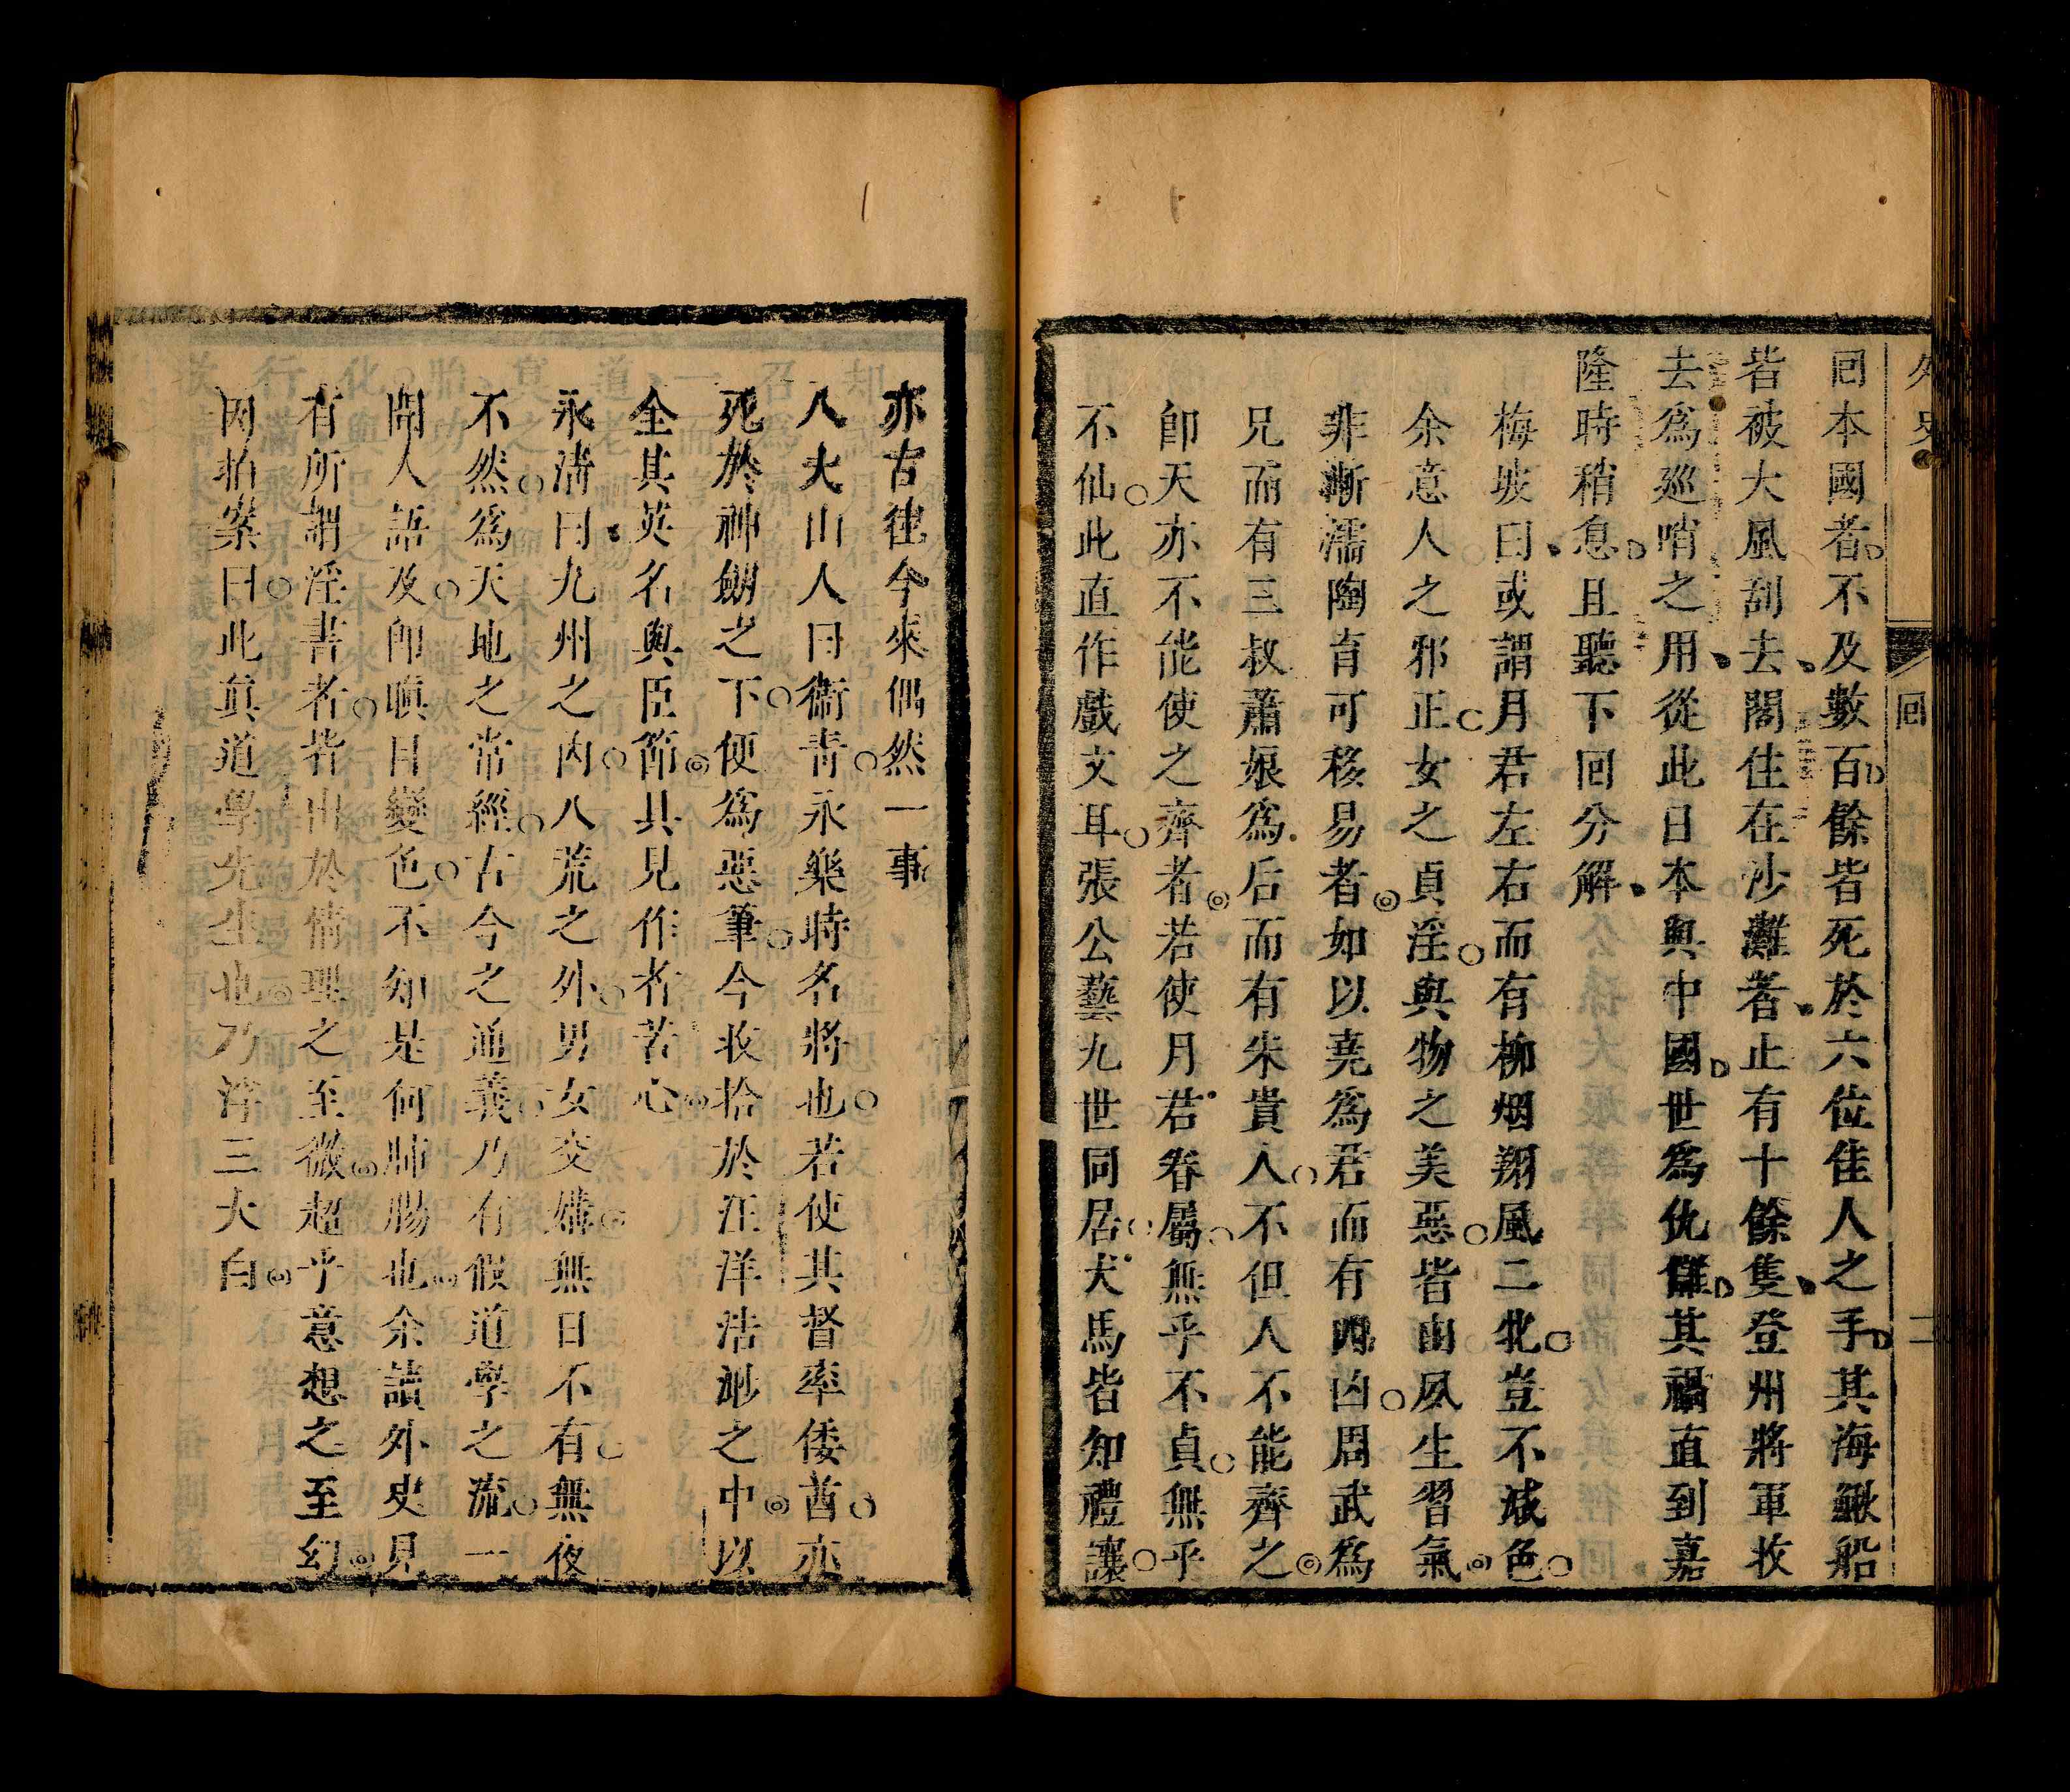 外史
回
二
回本國者不及數百餘皆死於六位佳人之手其海鰍船
皆被大風刮去閣住在沙灘者止有十餘隻登州將軍收
去爲巡哨之用從此日本與中國世爲仇讎其禍直到嘉
隆時稍息且聽下回分解
梅坡曰或謂月君左右而有柳烟翔風二牝豈不減色
余意人之邪正女之貞淫與物之美惡皆由夙生習氣
非漸濡陶育可移易者如以堯爲君而有四凶周武爲
兄而有三叔蕭娘爲后而有朱貴人不但人不能齊之
卽天亦不能使之齊者若使月君眷屬無乎不貞無乎
不仙此直作戲文耳張公藝九世同居犬馬皆知禮讓
亦古往今來偶然一事
八大山人曰衞青永樂時名將也若使其督率倭酋亦
死於神劒之下便爲惡筆今收拾於汪洋浩渺之中以
全其英名與臣節具見作者苦心
永清曰九州之內八荒之外男女交媾無日不有無夜
不然爲天地之常經古今之通義乃有假道學之流一
聞人語及卽瞋目變色不知是何肺腸也余讀外史見
有所謂淫書者皆出於情理之至微超乎意想之至幻
因拍案曰此眞道學先生也乃浮三大白